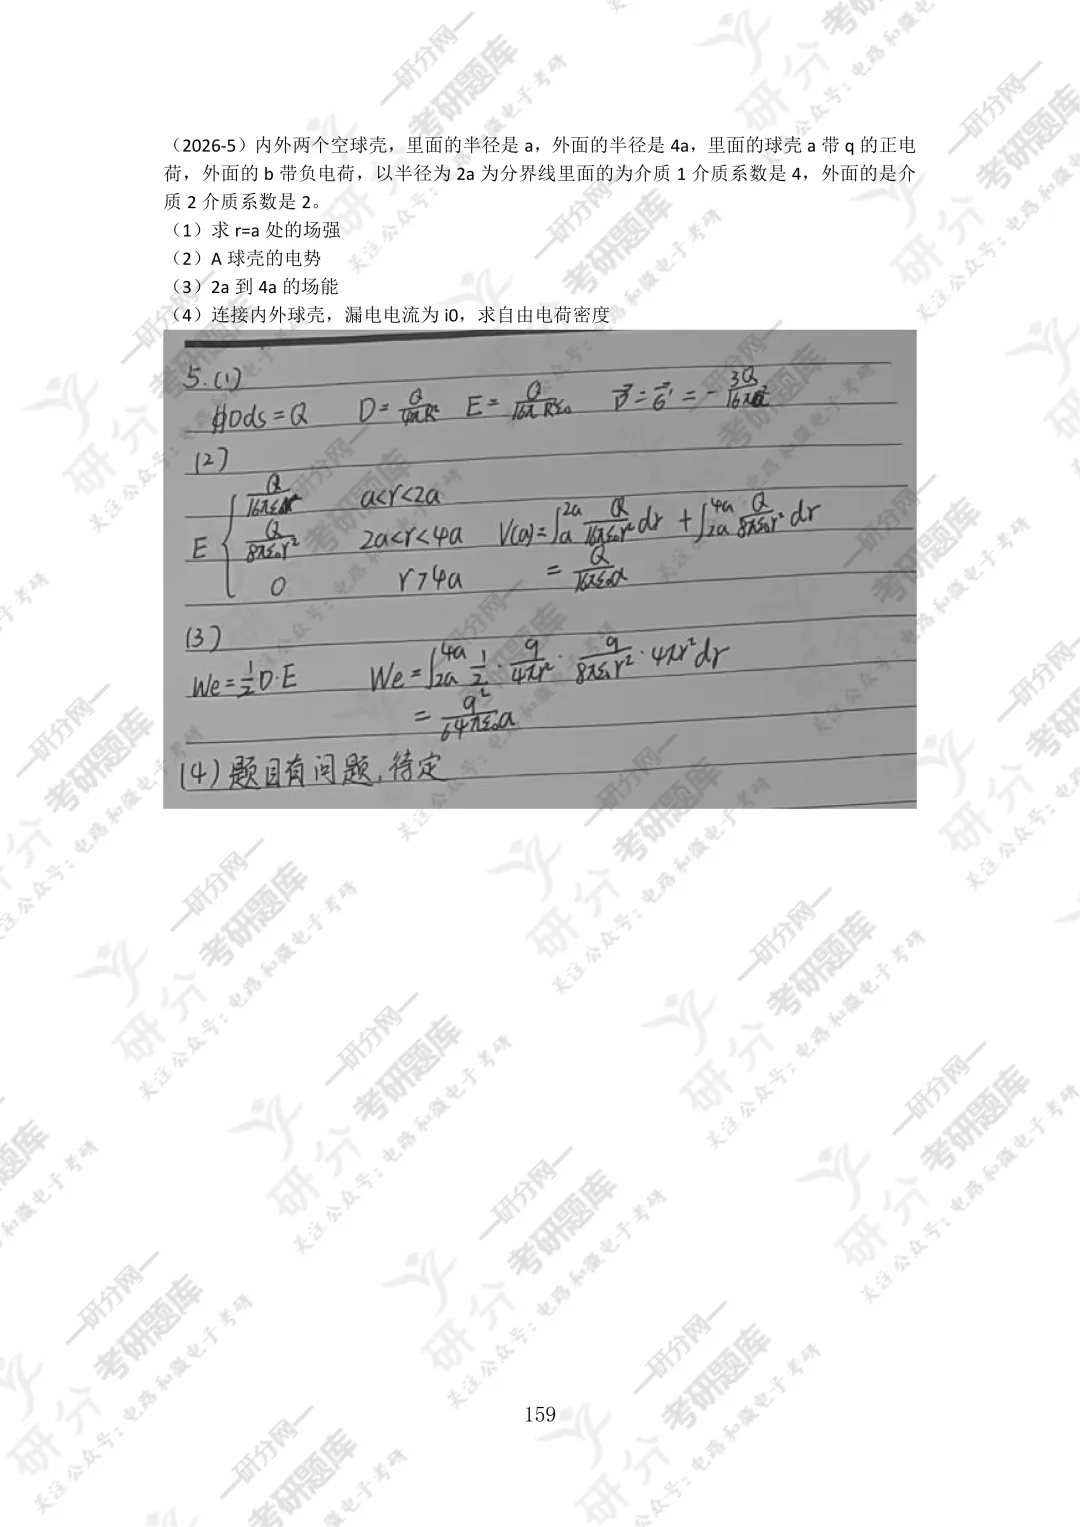 （2026-5）内外两个空球壳，里面的半径是 a，外面的半径是 4a，里面的球壳 a 带 q 的正电
荷，外面的 b 带负电荷，以半径为 2a 为分界线里面的为介质 1 介质系数是 4，外面的是介
质 2 介质系数是 2。
（1）求 r=a 处的场强
（2）A 球壳的电势
（3）2a 到 4a 的场能
（4）连接内外球壳，漏电电流为 i0，求自由电荷密度
5.(1)
∯Dds=Q D=Q/4πR² E=Q/16πR²ε₀
(2)
E { Q/16πε₀r² a<r<2a
Q/8πε₀r² 2a<r<4a V(a)=∫_a^{2a} Q/16πε₀r² dr + ∫_{2a}^{4a} Q/8πε₀r² dr
0 r>4a = Q/16πε₀a
(3)
We=½D·E We=∫_{2a}^{4a} ½·q/4πr²·q/8πε₀r²·4πr²dr
= q²/64πε₀a
(4) 题目有问题,待定
159
研分网
考研题库
研分
关注公众号：电路和微电子考研